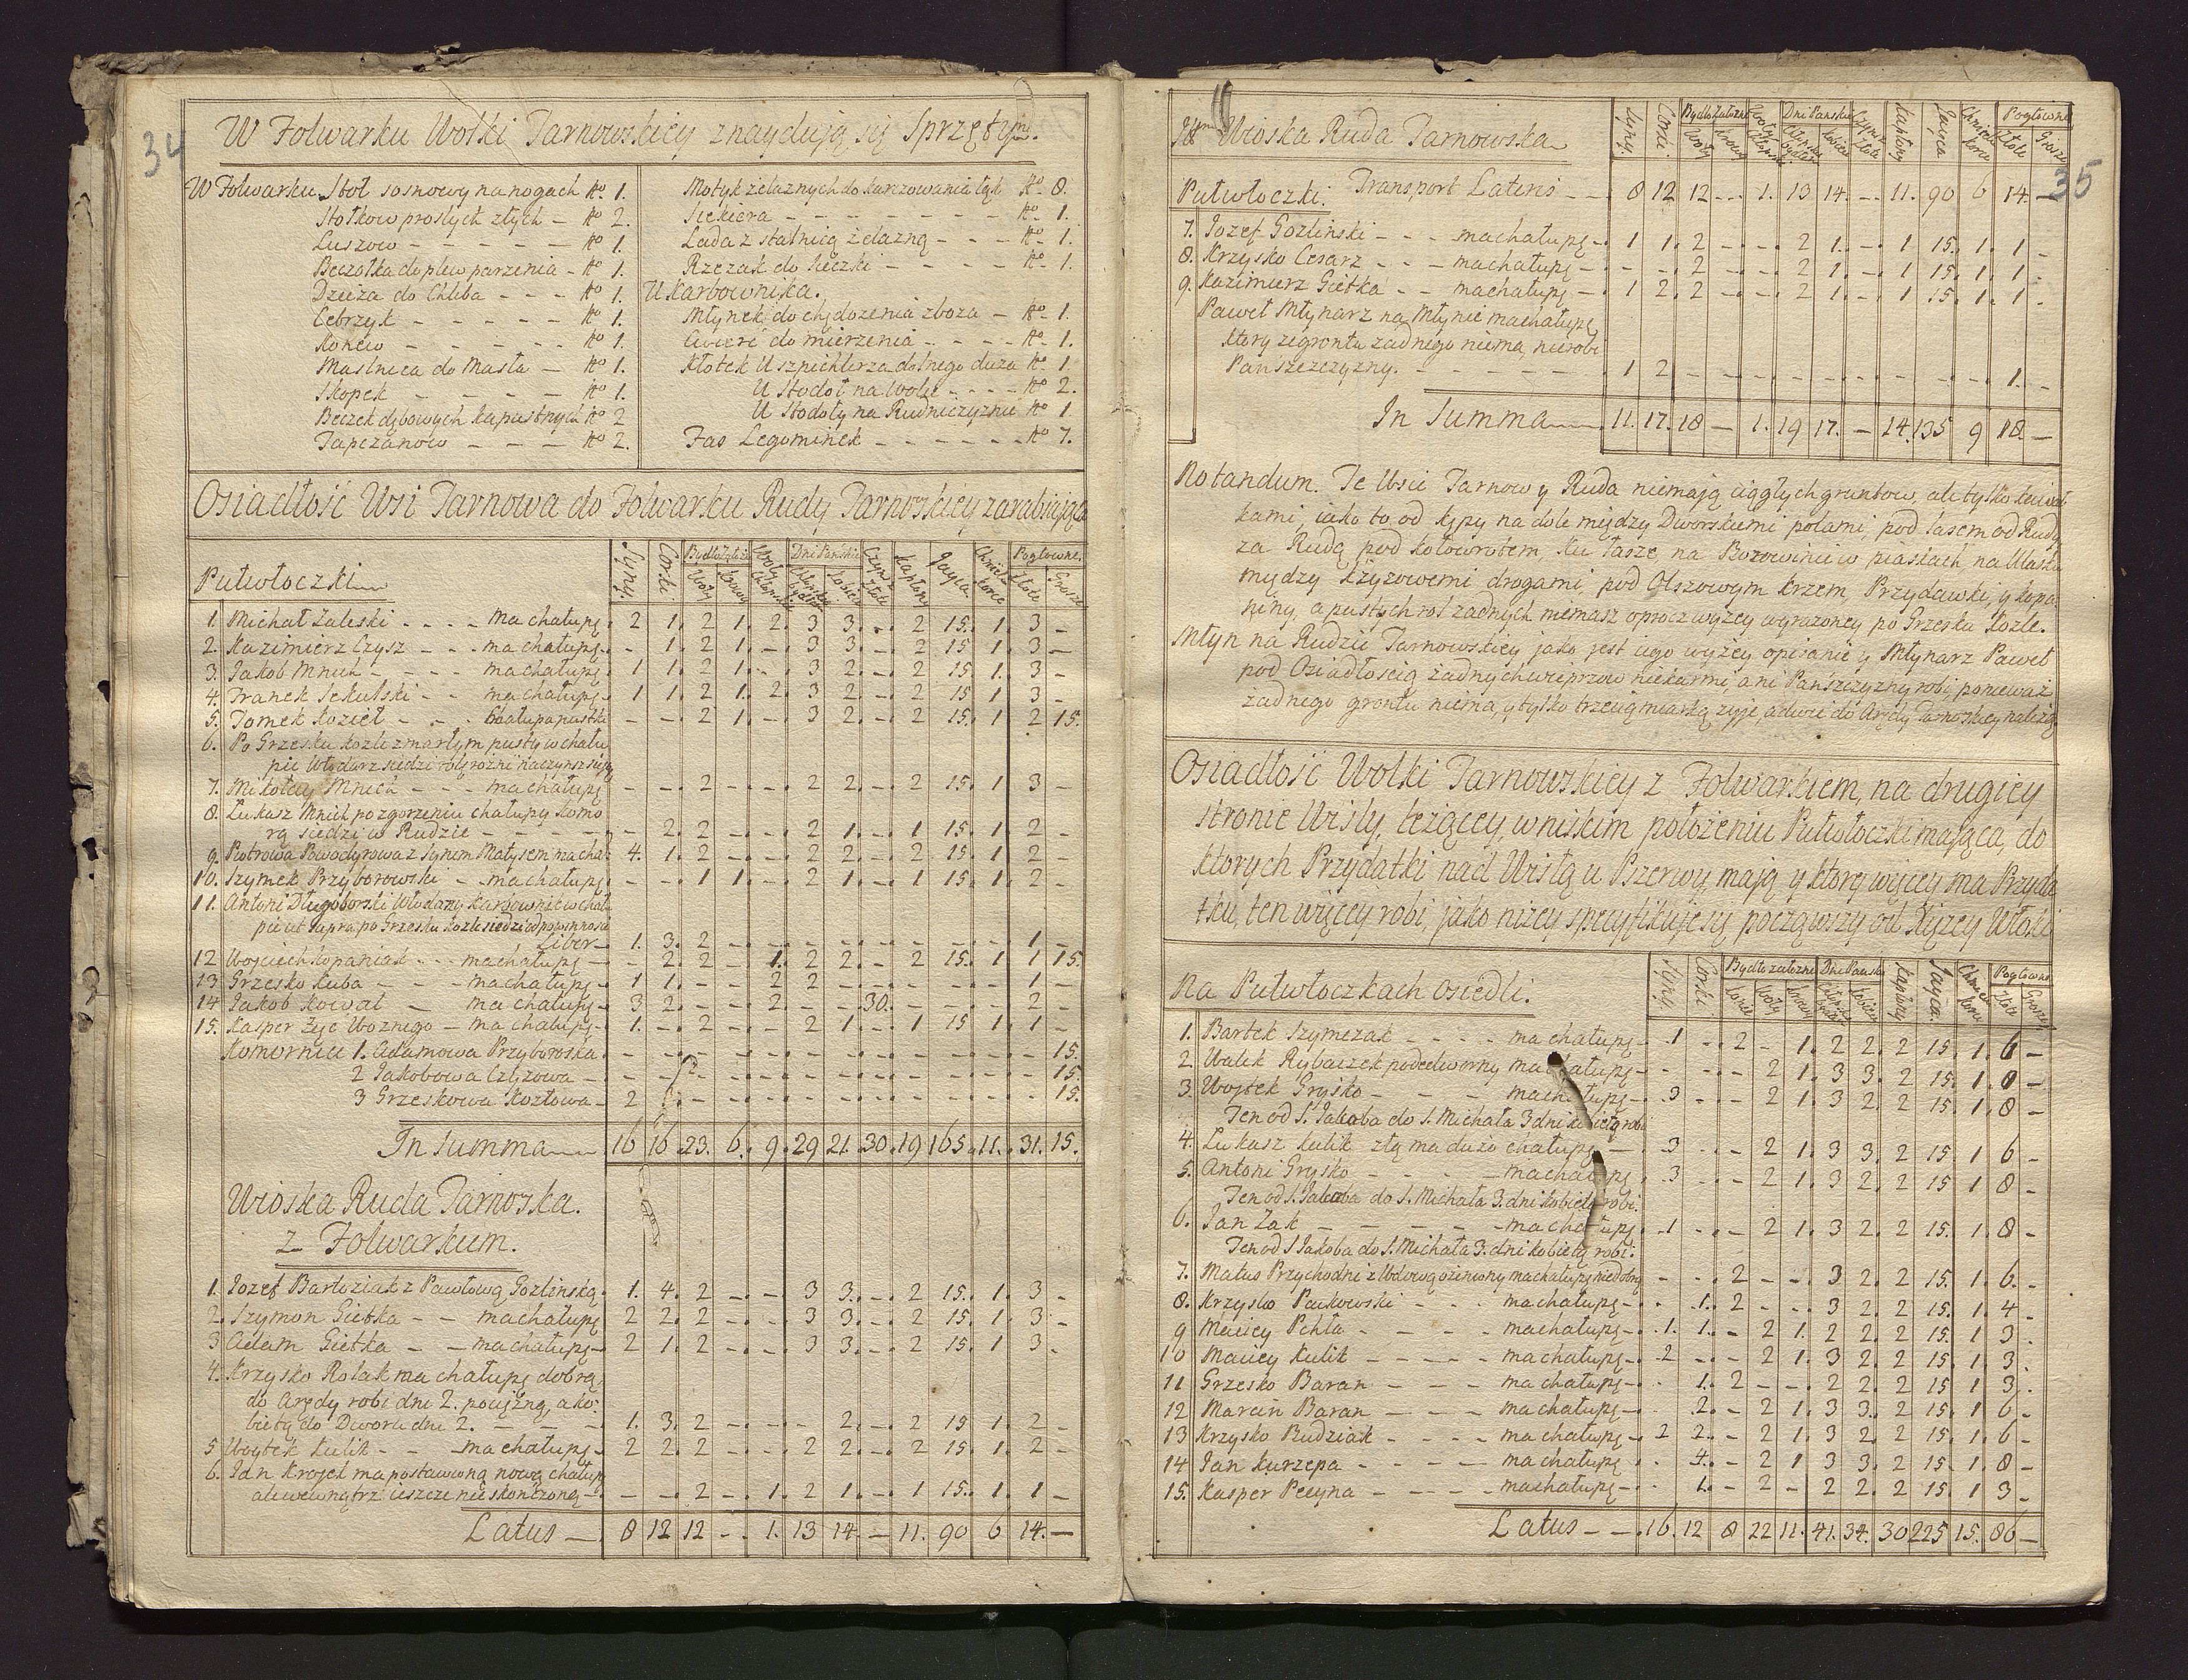 34
W Folwarku Wolki Tarnowskiey znayduią się Sprzęty.
W Folwarku Stoł sosnowy na nogach No 1.
Stołkow prostych złych – No 2.
Luszow – – – – – No 1.
Beczołka do plew parzenia – No 1.
Dzieża do Chleba – – – No 1.
Cebrzyk – – – – – No 1.
Konew – – – – – No 1.
Maslnica do Masła – No 1.
Skopek – – – – – No 1.
Beczek dębowych kapustnych No 2
Tapczanow – – – No 2.
Motyk żelaznych do karczowania łąk No 8.
Siekiera – – – – – – – No 1.
Lada z stalnicą żelazną – – – No 1.
Rzezak do Sieczki – – – – – No 1.
U Karbownika.
Młynek do chędozenia zboza – No 1.
Cwierć do mierzenia – – – – No 1.
Kłotek U szpichlerza dolnego duza No 1.
U Stodoł na Wolce – – – – No 2.
U Stodoły na Rudniczyznie No 1.
Fas Legominek – – – – – – No 7.
Osiadłość Wsi Tarnowa do Folwarku Rudy Tarnoskiey zarabiaiąca
Pułwłoczki
Syny. Corki. Bydło Założ. Woły Krowy Dni Pańskie Czynsz Złote Kapłony Jayca Chmielu korce Pogłowne. Złote Grosze
1. Michał Zaleski – – – – ma chałupę. 2 1. 2 1. 2. 3 3. – 2 15. 1. 3 –
2. Kazimierz Czysz – – – ma chałupę. – 1. 2 1. – 3 3. – 2 15 1. 3 –
3. Jakob Mnich – – – – ma chałupę 1 1. 2 1. – 3 2. – 2 15 1. 3 –
4. Franek Sekulski – – ma chałupę. 1 1. 2 1. 2. 3 2 – 2 15 1 3 –
5. Tomek Kozieł – – – Chałupa pustki – – 2 1. – 3 2. – 2 15. 1 2 15.
6. Po Grzesku Kozle zmarłym pusty w chału
pie Włodarz siedzi
7. Mikołay Mnich – – – ma chałupę – – 2 – – 2 2. – 2 15. 1 3 –
8. Łukasz Mnich po zgorzeniu chałupy komo
rą siedzi w Rudzie – – – – – – 2. 2 – – 2 1. – 1 15. 1 2 –
9. Piotrowa Powodyrowa z Synem Matysem ma chał: 4. 1. 2 – – 2 2. – 2 15. 1 2 –
10. Szymek Przyborowski – ma chałupę. – – 1 1. – 2 1. – 1 15. 1. 2 –
11. Antoni Długoborski Włodarz Karbownik w chału
pie ut supra po Grzesku Kozle siedzi od powinnosci
Liber – 1. 3. 2 – – – – – – – – 1 –
12 Woyciech Kopaniak – – – ma chałupę – – 2. 2 – 1. 2 2. – 2 15. 1 1 15.
13 Grzesko Kuba – – – ma chałupę – 1 1. – – 2 2 – – – – – 1 –
14 Jakob Kowal – ma chałupę – 3 2. – – 2. – – 30. – – – 2 –
15. Kasper Zyc Woznego – ma chałupę – 1. – 2 – – 2 1. – 1 15 1. 1 –
Komornice 1. Adamowa Przyboroska. – – – – – – – – – – – – 15.
2 Jakobowa Czyzowa – – – – – – – – – – – – – 15.
3 Grzeskowa Kozłowa – 2 – – – – – – – – – – – 15.
In Summa 16 16 23. 6. 9. 29 21. 30. 19 165. 11. 31. 15.
Wioska Ruda Tarnoska.
z Folwarkiem.
1. Iozef Bartosiak z Pawłową Gozlinską. 1. 4. 2 – – 3 3. – 2 15. 1. 3 –
2. Szymon Giebka – – ma chałupę 2 2. 2 – – 3 3. – 2 15 1. 3 –
3 Adam Giebka – – ma chałupę – 2 1. 2 – – 3 3. – 2 15. 1 3 –
4. Krzysko Rolak ma chałupę dobrą,
do Arędy robi dni 2. pociężną, a ko:
bietą do Dworu dni 2. – – – 1. 3. 2 – – – 2. – 2 15 1. 2 –
5 Woytek Kulik – – ma chałupę – 2 2. 2 – – 2 2. – 2 15. 1. 2 –
6. Jan Krojek ma postawioną nową chałupę
ale wewnątrz ieszcze nieskończoną – – – 2 – 1. 2 1. – 1 15. 1. 1 –
Latus – 8 12 12 – 1. 13 14. – 11. 90 6 14. –
35
Wioska Ruda Tarnowska
Syny. Corki. Bydło Załozne Woły Krowy Dni Panskie Czynsz Złote Kapłony Jayca Chmielu korce Pogłowne Złote Grosze
Pułwłoczki. Transport Lateris – – 8 12 12 – – 1. 13 14. – 11. 90 6 14. –
7. Iozef Gozlinski – – – ma chałupę – 1 1. 2 – – 2 1. – 1 15. 1. 1 –
8. Krzysko Cesarz – – – ma chałupę – – – 2 – – 2 1. – 1 15. 1. 1 –
9. Kazimierz Giebka – – ma chałupę – 1 2. 2 – – 2 1. – 1 15. 1. 1 –
Paweł Młynarz na Młynie ma chałupę,
ktory ze grontu żadnego niema, nierobi
Panszczyzny. – – – – – 1 2 – – – – – – – – – 1. –
In Summa 11. 17. 18 – 1. 19 17. – 14. 135 9 18. –
Notandum. Te Wsie Tarnow y Ruda niemaią ciągłych gruntow, ale tylko kawał
kami, iako to, od Kępy na dole między Dworskiemi polami, pod lasem od Rudy
za Rudą pod Kołowrotem, ku łasze na Borowinie w piaskach, na
między krzyzowemi drogami, pod Olszowym krzem, Przydawki, y kopa:
niny, a pustych rol żadnych niemasz oprocz wyzey wyrażoney po Grzesku Kozle.
Młyn na Rudzie Tarnowskiey jako jest iego wyżey opisanie y Młynarz Paweł
pod Osiadłością żadnych wieprzow niekarmi, ani Panszczyzny robi, ponieważ
żadnego grontu niema, y tylko trzecią miarką żyje, a dwie do Arędy Tarnoskiey należą.
Osiadłość Wolki Tarnowskiey z Folwarkiem, na drugiey
stronie Wisły, leżącey, w niskim położeniu Pułwłoczki maiąca, do
ktorych Przydatki nad Wisłą u Pszerwy maią y ktory więcey ma Przyda
tku, ten więcey robi, jako niżey specyfikuje się począwszy od
Na Pułwłoczkach Osiedli.
Syny. Corki. Bydło załozne Konie Woły Krowy Dni Panskie Kapłony Jayca. Chmielu korce Pogłowne Złote Grosze
1. Bartek Szymczak – – – – ma chałupę – 1 – 2 – 1. 2 2. 2 15. 1. 6 –
2 Walek Rybaczek podedworny ma chałupę – – – – 2 1. 3 3. 2 15. 1. 8 –
3. Woytek Grysko – – – ma chałupę – 3 – – 2 1. 3 2. 2 15. 1. 8 –
Ten od S. Jakoba do S. Michała 3 dni kobietą robi
4. Łukasz Kulik złą ma dużo chałupę – 3 – – 2 1. 3 3. 2 15. 1 6 –
5. Antoni Grysko – – – – ma chałupę 3 – – 2 1. 3 2. 2 15 1 8 –
Ten od S. Jakoba do S. Michała 3. dni kobietą robi.
6. Jan Zak – – – – – ma chałupę 1 – – 2 1. 3 2. 2 15. 1. 8 –
Ten od S Jakoba do S. Michała 3. dni kobietą robi.
7. Matus Przychodni z Wdową ożeniony ma chałupę niedobrą – – 2 – – 3 2. 2 15. 1. 6. –
8. Krzysko Paukowski – – – ma chałupę – – 1. 2 – – 3 2. 2 15. 1. 4 –
9 Maciey Pchła – – – – ma chałupę – 1. 1. – 2 1. 2 2. 2 15. 1 3 .
10 Maciey Kulik – – – – – ma chałupę – 2 – – 2 1. 3 2. 2 15. 1. 3 .
11 Grzesko Baran – – – ma chałupę – – 1. 2 – – 2 2. 2 15 1 3 .
12 Marcin Baran – – – – ma chałupę – – 2. – 2 1. 3 3. 2 15. 1 6 –
13 Krzysko Rudziak – – – – ma chałupę – 2 2. – 2 1. 3 2. 2 15. 1. 6 –
14 Jan Kurzepa – – – – ma chałupę – 4. – 2 1 3 3. 2 15. 1. 8 –
15. Kasper Pecyna – – – – ma chałupę – – 1. – 2 – 2 2. 2 15. 1 3 –
Latus – – 16. 12 8 22 11. 41. 34. 30 225 15. 86 –